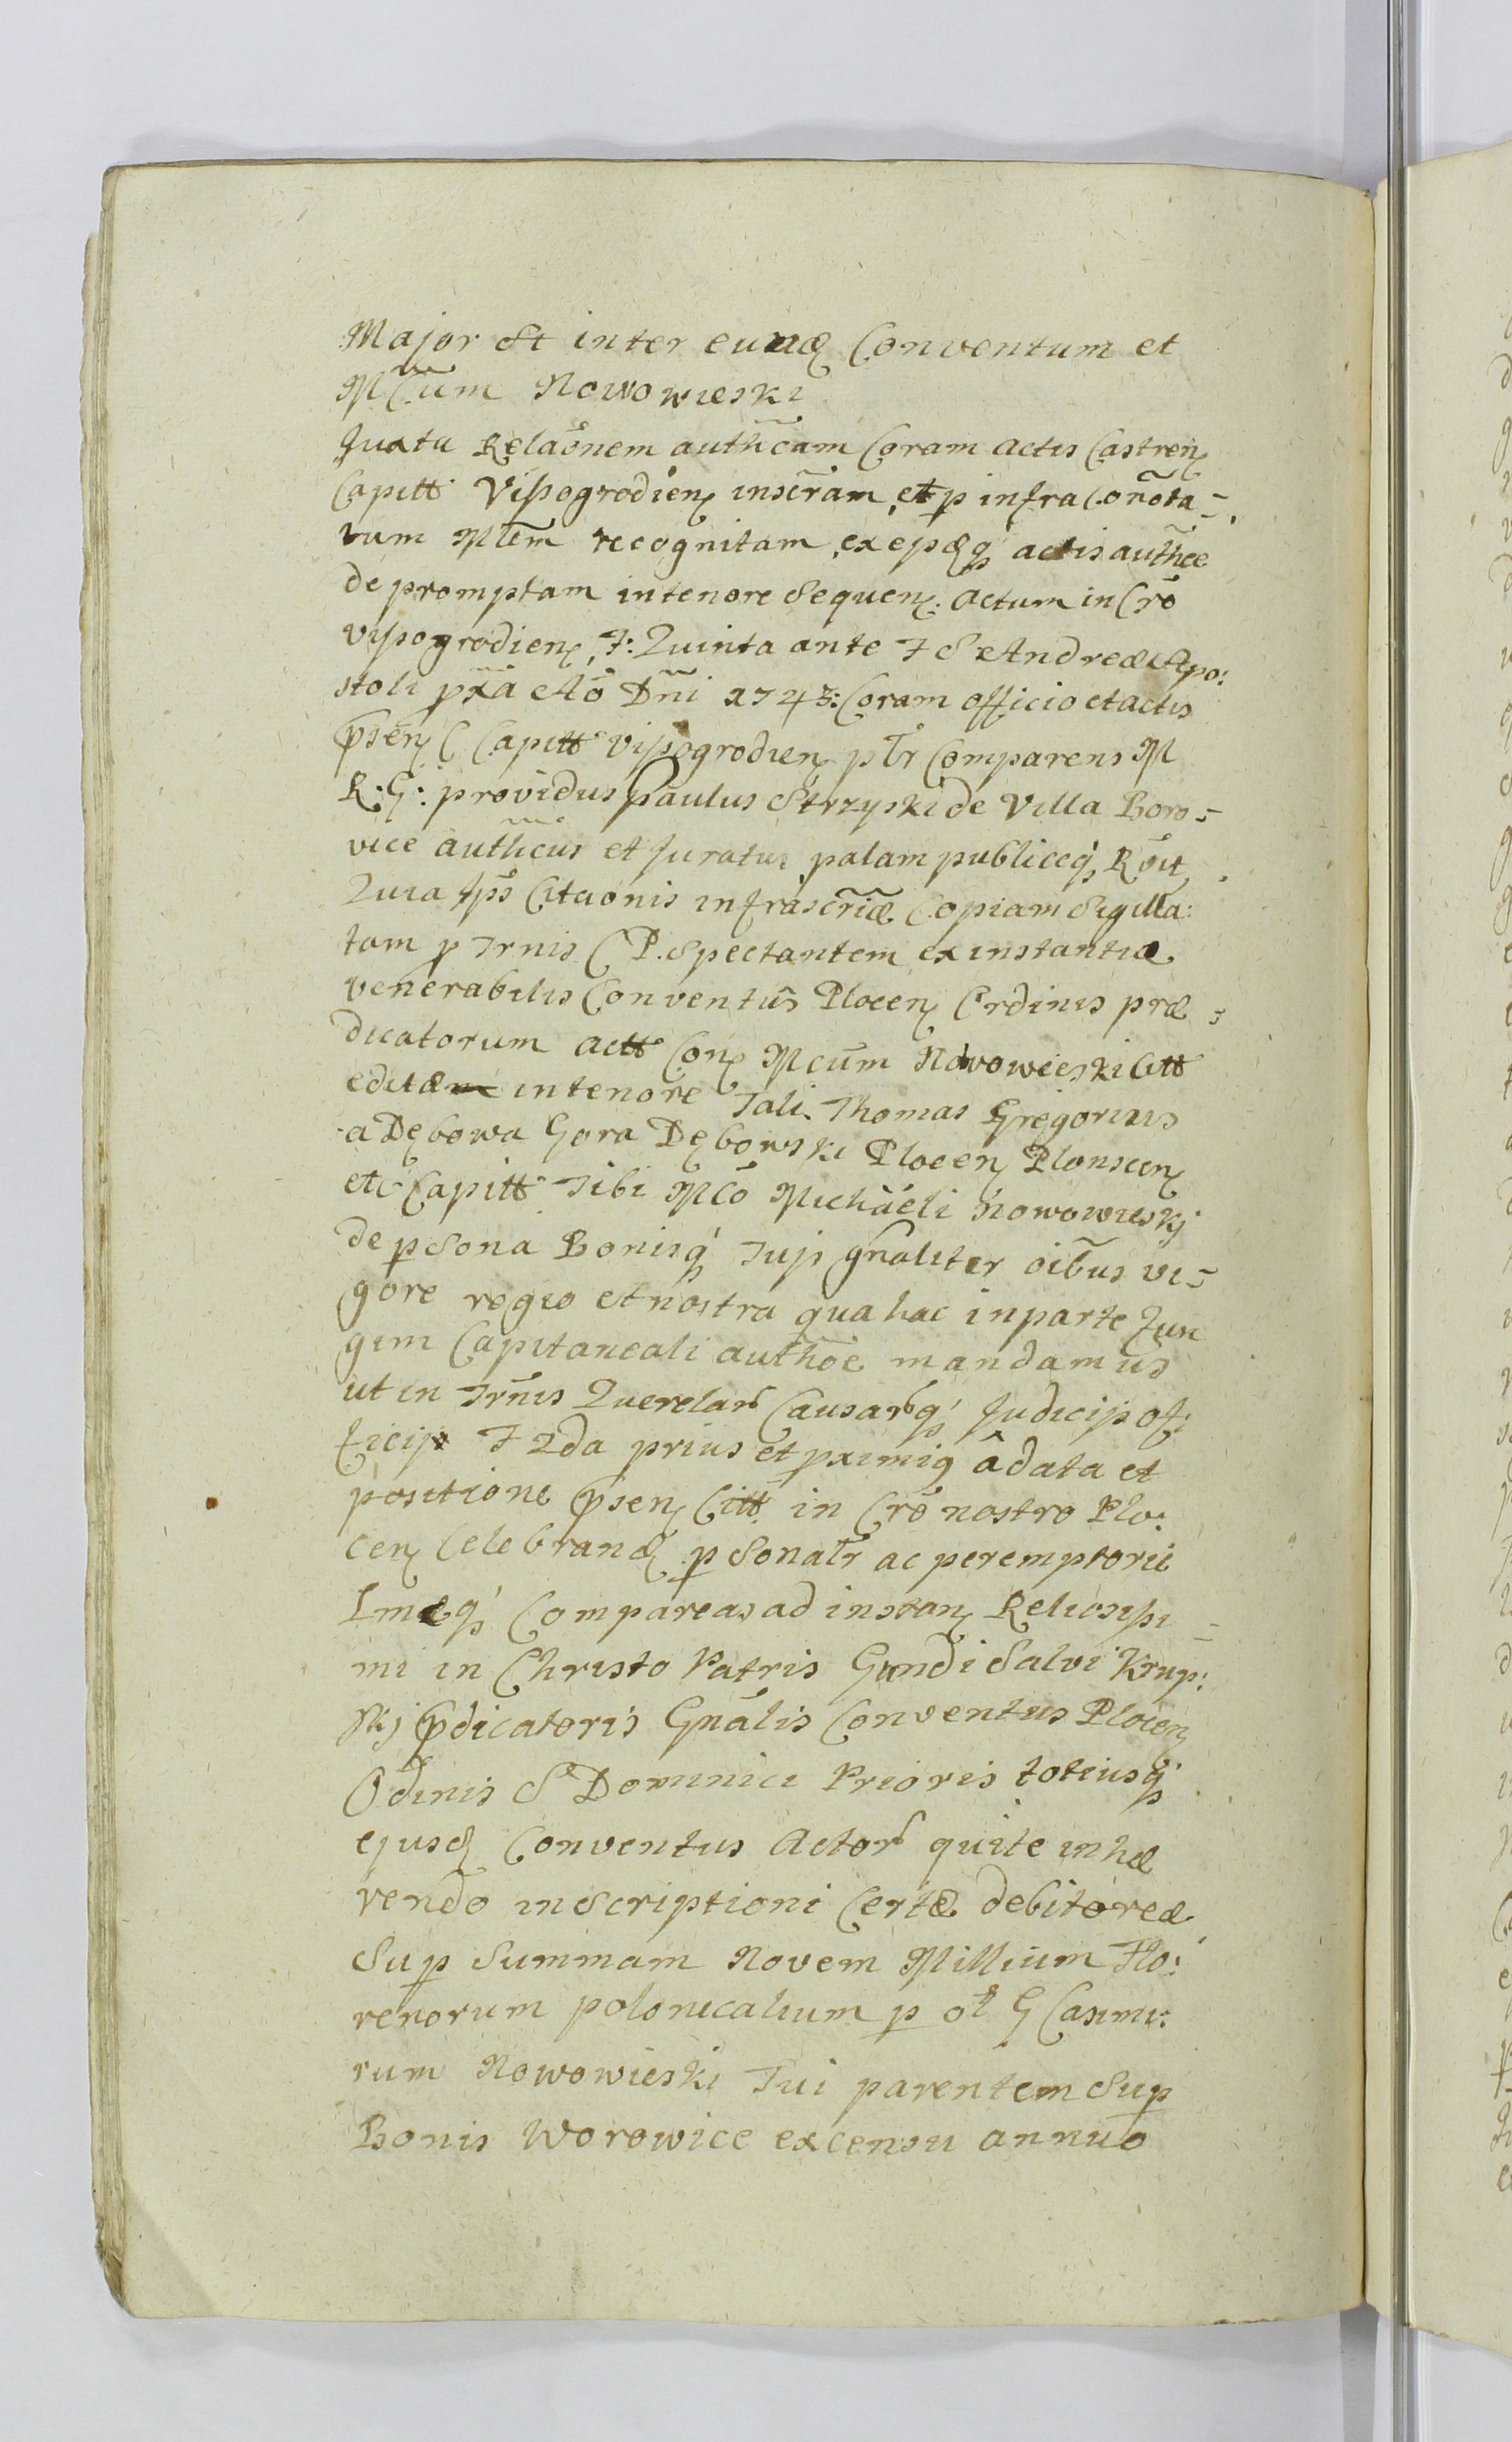 Major St inter eund Conventum et
MCum Nowowieski
Juxta Relaonem authcam Coram actis Castren
Capitt Vissogrodien inscram, et p infra Connota-
tum Mlem recognitam, ex epdq actis authce
de promptam in tenore Sequen. Actum in Cro
vissogrodien, F: Quinta ante F S Andreæ Apo:
stoli pxa Ao Dni 1743: Coram officio et actis
Psen C Capitt vissogrodien plr Comparens M
R: G: providus Paulus Strzyski de Villa Boro-
vice authcus et Juratus palam publiceq Roit
Quia Ips Citaonis infrascriæ Copiam Sigilla:
tam p Trnis C P. Spectantem ex instantia
venerabilis Conventus Plocen Ordinis præ-
dicatorum actt Con MCum Nowowieski Citt
editam in tenore Tali. Thomas Gregorius
a Dębowa Gora Dębowski Plocen Plonscen
etc Capitt Tibi MCo Michaeli Nowowieskj
de psona Bonisq Tujs gnaliter oibus vi-
gore regio et nostra qua hac in parte fun
gim Capitaneali authoe mandamus
ut in Trnis Querelar Causarq Judicijs of:
ficijs F 2da prius et pximiq â data et
positione Psen Citt in Cro nostro Plo:
cen Celebrand p Sonatr ac peremptorie
Lmeq Compareas ad instan Reliosissi-
mi in Christo Patris Gundi Salvi Krup:
skj Pdicatoris Gnalis Conventus Plocen
Odinis S Dominici Prioris totiusq
ejusd Conventus Actor qui te inhæ
rendo inscriptioni Certæ debitoreæ
Sup Summam Novem Millium Flo:
renorum polonicalium p ol G Casimi:
rum Nowowieski Tui parentem Sup
Bonis Worowice ex censu annuo